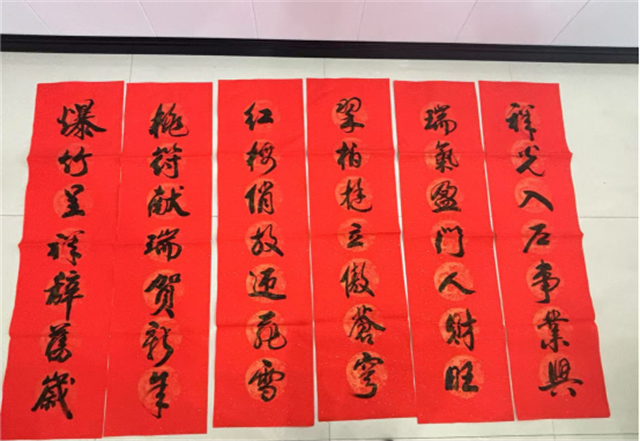 爆竹呈祥辭舊歲
桃符献瑞賀新年
红梅俏放迎飛雪
翠柏挺立傲蒼穹
瑞氣盈門人财旺
祥光入户事業興